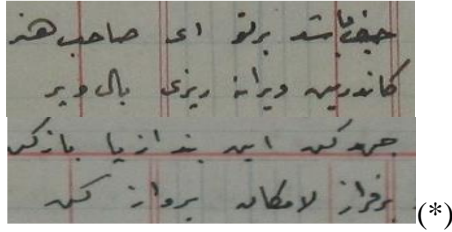 حیف باشد بر تو ای صاحب هنر
کاندرین ویرانه ریزی بال و پر
جهد کن این بند از پا باز کن
بر فراز لامکان پرواز کن
(*)